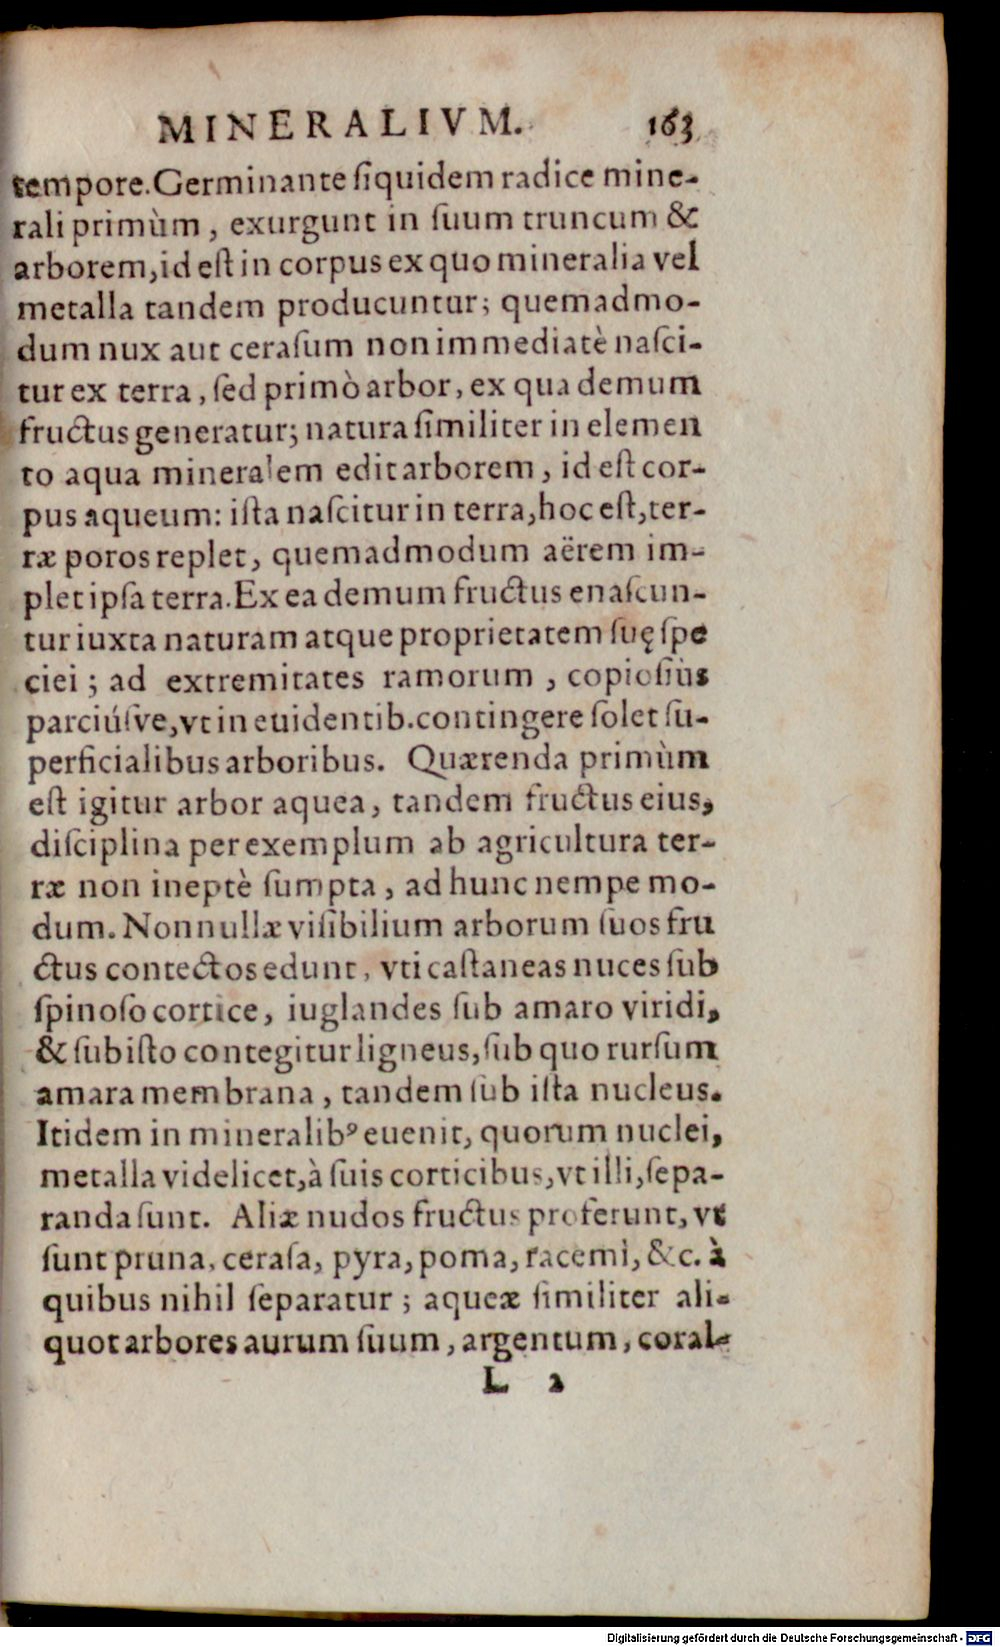 MINERALIVM. 163
tempore. Germinante ſiquidem radice mine-
rali primùm, exurgunt in ſuum truncum &
arborem, id eſt in corpus ex quo mineralia vel
metalla tandem producuntur; quemadmo-
dum nux aut ceraſum non immediatè naſci-
tur ex terra, ſed primò arbor, ex qua demum
fructus generatur; natura ſimiliter in elemen
to aqua mineralem edit arborem, id eſt cor-
pus aqueum: iſta naſcitur in terra, hoc eſt, ter-
ræ poros replet, quemadmodum aërem im-
plet ipſa terra. Ex ea demum fructus enaſcun-
tur iuxta naturam atque proprietatem ſuę ſpe
ciei; ad extremitates ramorum, copioſiùs
parciúſve, vt in euidentib. contingere ſolet ſu-
perficialibus arboribus. Quærenda primùm
eſt igitur arbor aquea, tandem fructus eius,
diſciplina per exemplum ab agricultura ter-
ræ non ineptè ſumpta, ad hunc nempe mo-
dum. Nonnullæ viſibilium arborum ſuos fru
ctus contectos edunt, vti caſtaneas nuces ſub
ſpinoſo cortice, iuglandes ſub amaro viridi,
& ſub iſto contegitur ligneus, ſub quo rurſum
amara membrana, tandem ſub iſta nucleus.
Itidem in mineralibꝰ euenit, quorum nuclei,
metalla videlicet, à ſuis corticibus, vt illi, ſepa-
randa ſunt. Aliæ nudos fructus proferunt, vt
ſunt pruna, ceraſa, pyra, poma, racemi, &c. à
quibus nihil ſeparatur; aqueæ ſimiliter ali-
quot arbores aurum ſuum, argentum, coral-
L 2
Digitalisierung gefördert durch die Deutsche Forschungsgemeinschaft - DFG